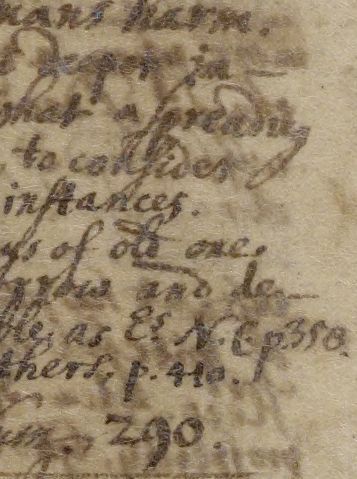 mans harm.
deeper in
what a spreading
, to consider
instances.
ys of old one.
rrow and de-
ble, as Es. N. E. p350.
thers. p. 410.
290.